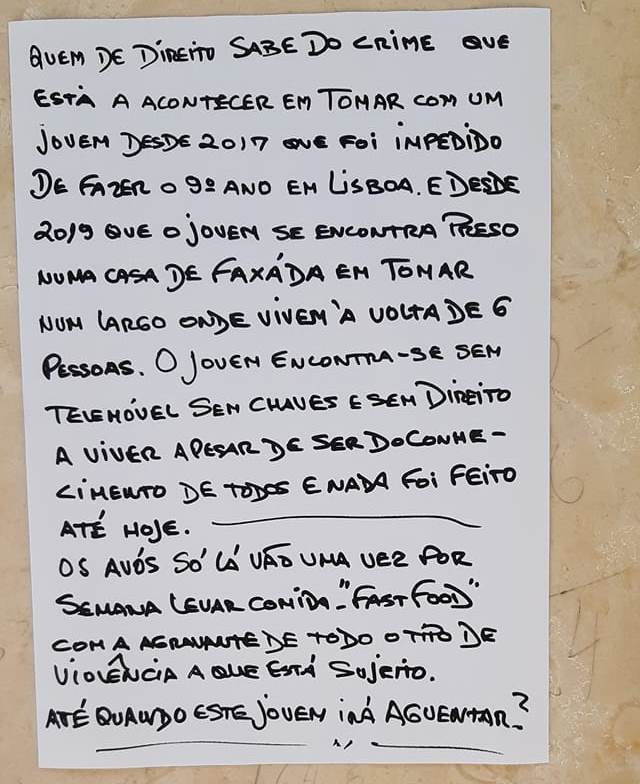 QUEM DE DIREITO SABE DO CRIME QUE
ESTÀ A ACONTECER EM TOMAR COM UM
JOVEM DESDE 2017 QUE FOI IMPEDIDO
DE FAZER O 9º ANO EM LISBOA. E DESDE
2019 QUE O JOVEM SE ENCONTRA PRESO
NUMA CASA DE FAXÁDA EM TOMAR
NUM LARGO ONDE VIVEM À VOLTA DE 6
PESSOAS. O JOVEM ENCONTRA-SE SEM
TELEMÓVEL SEM CHAVES E SEM DIREITO
A VIVER APESAR DE SER DO CONHE-
CIMENTO DE TODOS E NADA FOI FEITO
ATÉ HOJE.
OS AVÓS SÓ LÁ VÃO UMA VEZ POR
SEMANA LEVAR COMIDA - "FAST FOOD"
COM A AGRAVANTE DE TODO O TIPO DE
VIOLÊNCIA A QUE ESTÁ SUJEITO.
ATÉ QUANDO ESTE JOVEM IRÁ AGUENTAR?